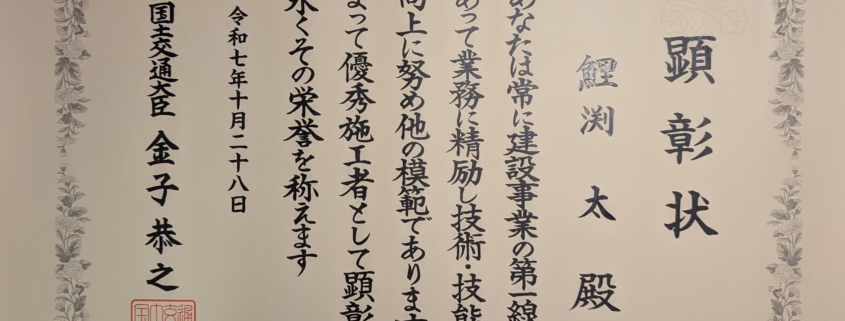 顕彰状
鯉渕太殿
あなたは常に建設事業の第一線
あって業務に精励し技術・技能
向上に努め他の模範であります
よって優秀施工者として顕彰
永くその栄誉を称えます
令和七年十月二十八日
国土交通大臣 金子恭之